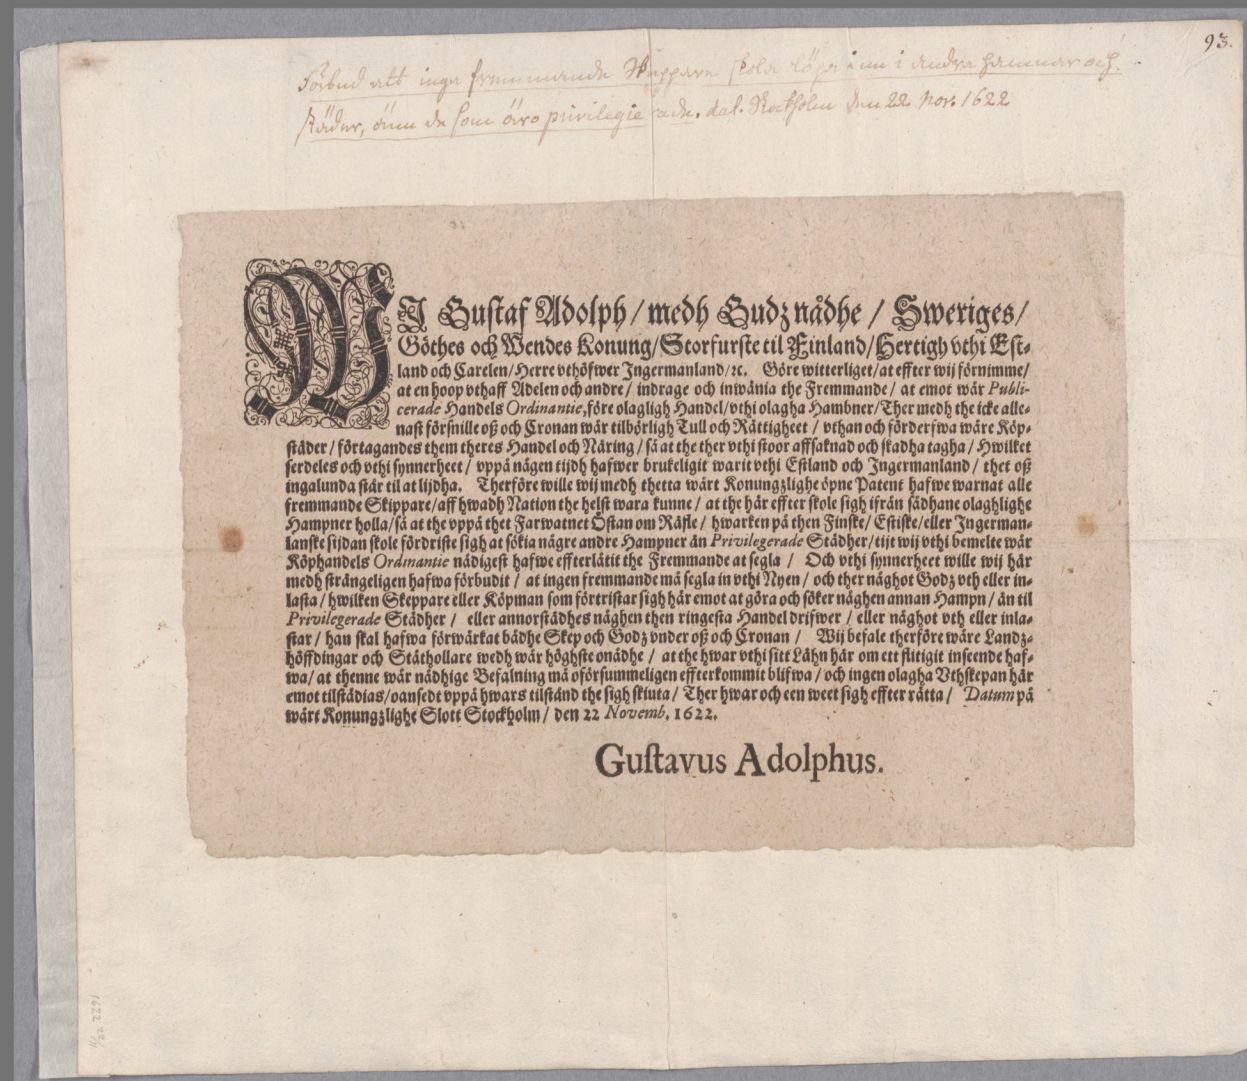 93.
Förbud att inga fremmande Skeppare skola löpa in i andra hamnar och
Städer, änn de som äro privilegierade, dat. Stockholm den 22 Nov. 1622
WJ Gustaf Adolph / medh Gudz nådhe / Sweriges /
Göthes och Wendes Konung / Storfurste til Finland / Hertigh vthi Est-
land och Carelen / Herre vthöfwer Jngermanland / ꝛc. Göre witterliget / at effter wij förnimme /
at en hoop vthaff Adelen och andre / indrage och inwänia the Fremmande / at emot wår Publi-
cerade Handels Ordinantie, före olagligh Handel / vthi olagha Hambner / Ther medh the icke alle-
nast försnille oß och Cronan wår tilbörligh Tull och Rättigheet / vthan och förderfwa wåre Köp-
städer / förtagandes them theres Handel och Näring / så at the ther vthi stoor affsaknad och skadha tagha / Hwilket
serdeles och vthi synnerheet / vppå någen tijdh hafwer brukeligit warit vthi Estland och Jngermanland / thet oß
ingalunda står til at lijdha. Therföre wille wij medh thetta wårt Konungzlighe öpne Patent hafwe warnat alle
fremmande Skippare / aff hwadh Nation the helst wara kunne / at the här effter skole sigh ifrån sådhane olaghlighe
Hampner holla / så at the vppå thet Farwatnet Östan om Räfle / hwarken på then Finske / Estiske / eller Jngerman-
lanske sijdan skole fördriste sigh at sökia någre andre Hampner än Privilegerade Städher / tijt wij vthi bemelte wår
Köphandels Ordinantie nådigest hafwe effterlåtit the Fremmande at segla / Och vthi synnerheet wille wij här
medh strängeligen hafwa förbudit / at ingen fremmande må segla in vthi Nyen / och ther någhot Godz vth eller in-
lasta / hwilken Skeppare eller Köpman som förtristar sigh här emot at göra och söker någhen annan Hampn / än til
Privilegerade Städher / eller annorstädhes någhen then ringesta Handel drifwer / eller någhot vth eller inla-
star / han skal hafwa förwärkat bådhe Skep och Godz vnder oß och Cronan / Wij befale therföre wåre Landz-
höffdingar och Ståthollare wedh wår höghste onådhe / at the hwar vthi sitt Lähn här om ett flitigit inseende haf-
wa / at thenne wår nådhige Befalning må oförsummeligen effterkommit blifwa / och ingen olagha Vthskepan här
emot tilstädias / oansedt vppå hwars tilstånd the sigh skiuta / Ther hwar och een weet sigh effter rätta / Datum på
wårt Konungzlighe Slott Stockholm / den 22 Novemb. 1622.
Gustavus Adolphus.
22/11 1622